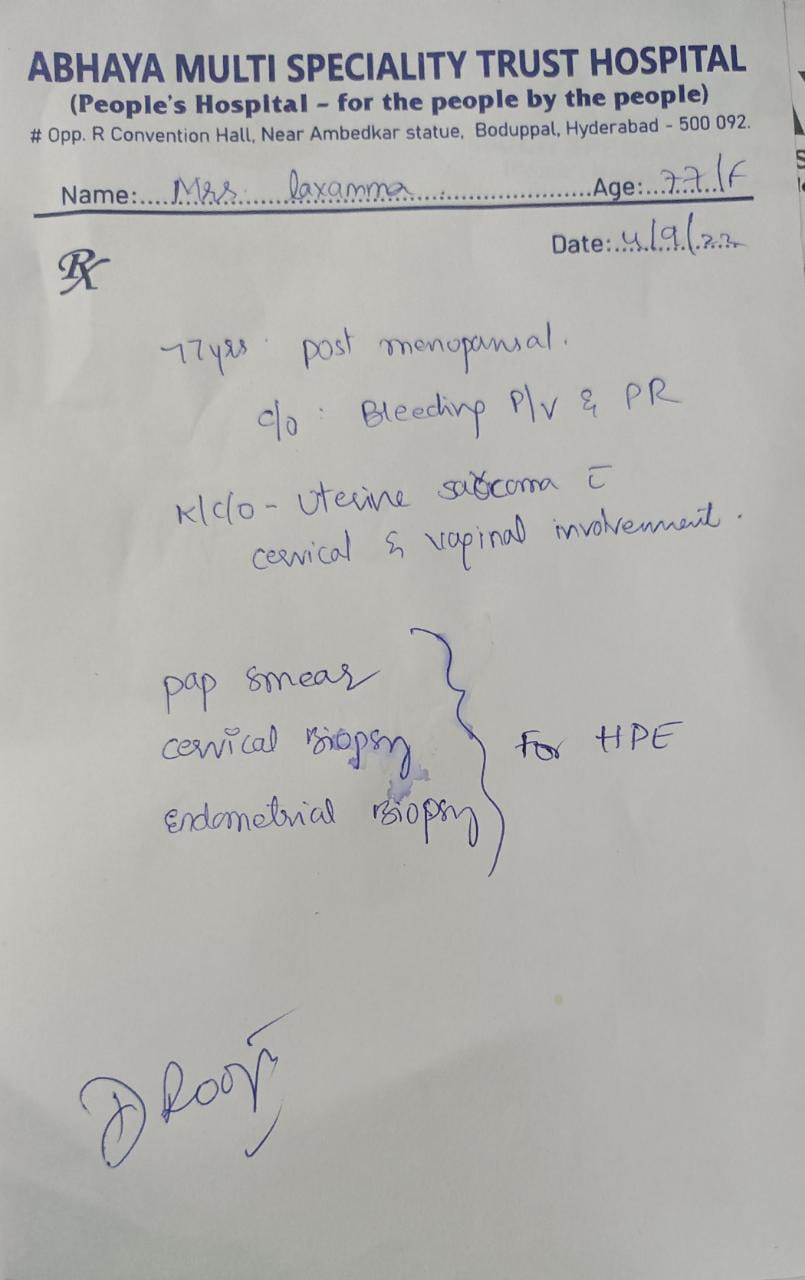 ABHAYA MULTI SPECIALITY TRUST HOSPITAL
(People's Hospital - for the people by the people)
# Opp. R Convention Hall, Near Ambedkar statue, Boduppal, Hyderabad - 500 092.
Name:.... Mrs. laxamma ....Age:..77/F
Date:..4/9/22
Rx
77yrs post menopausal.
c/o : Bleeding P/V & PR
K/c/o - Uterine sarcoma c̄
cervical & vaginal involvement.
pap smear
cervical Biopsy
For HPE
Endometrial Biopsy